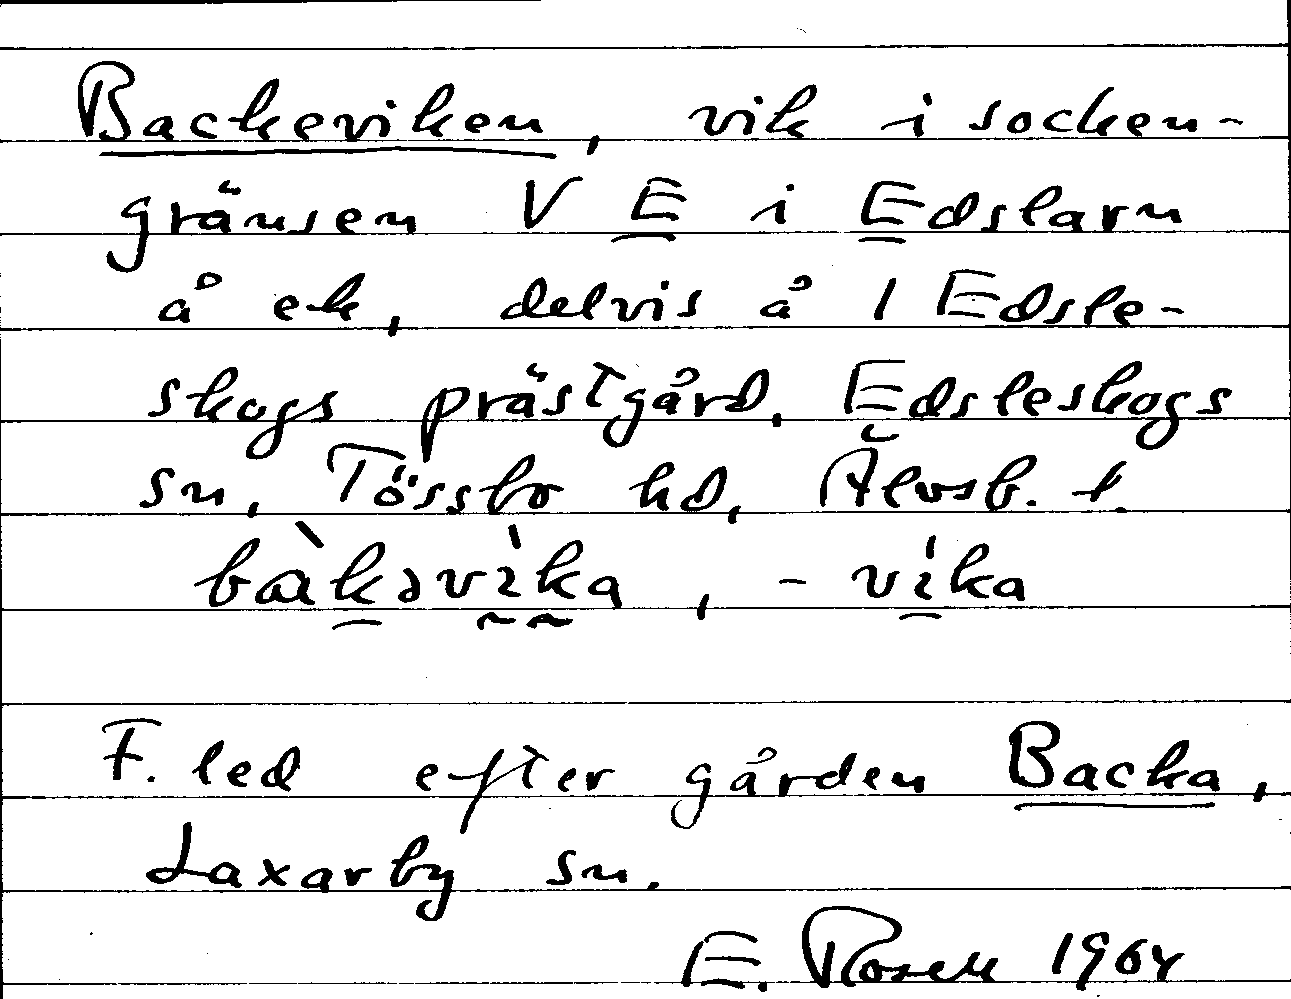 Backeviken, vik i socken-
gränsen V E i Edslarn
å ek, delvis å 1 Edsle-
skogs prästgård, Edsleskogs
sn, Tössbo hd, Älvsb. l.
bàkəvìka, - víka
F. led efter gården Backa,
Laxarby sn.
E. Rosell 1964